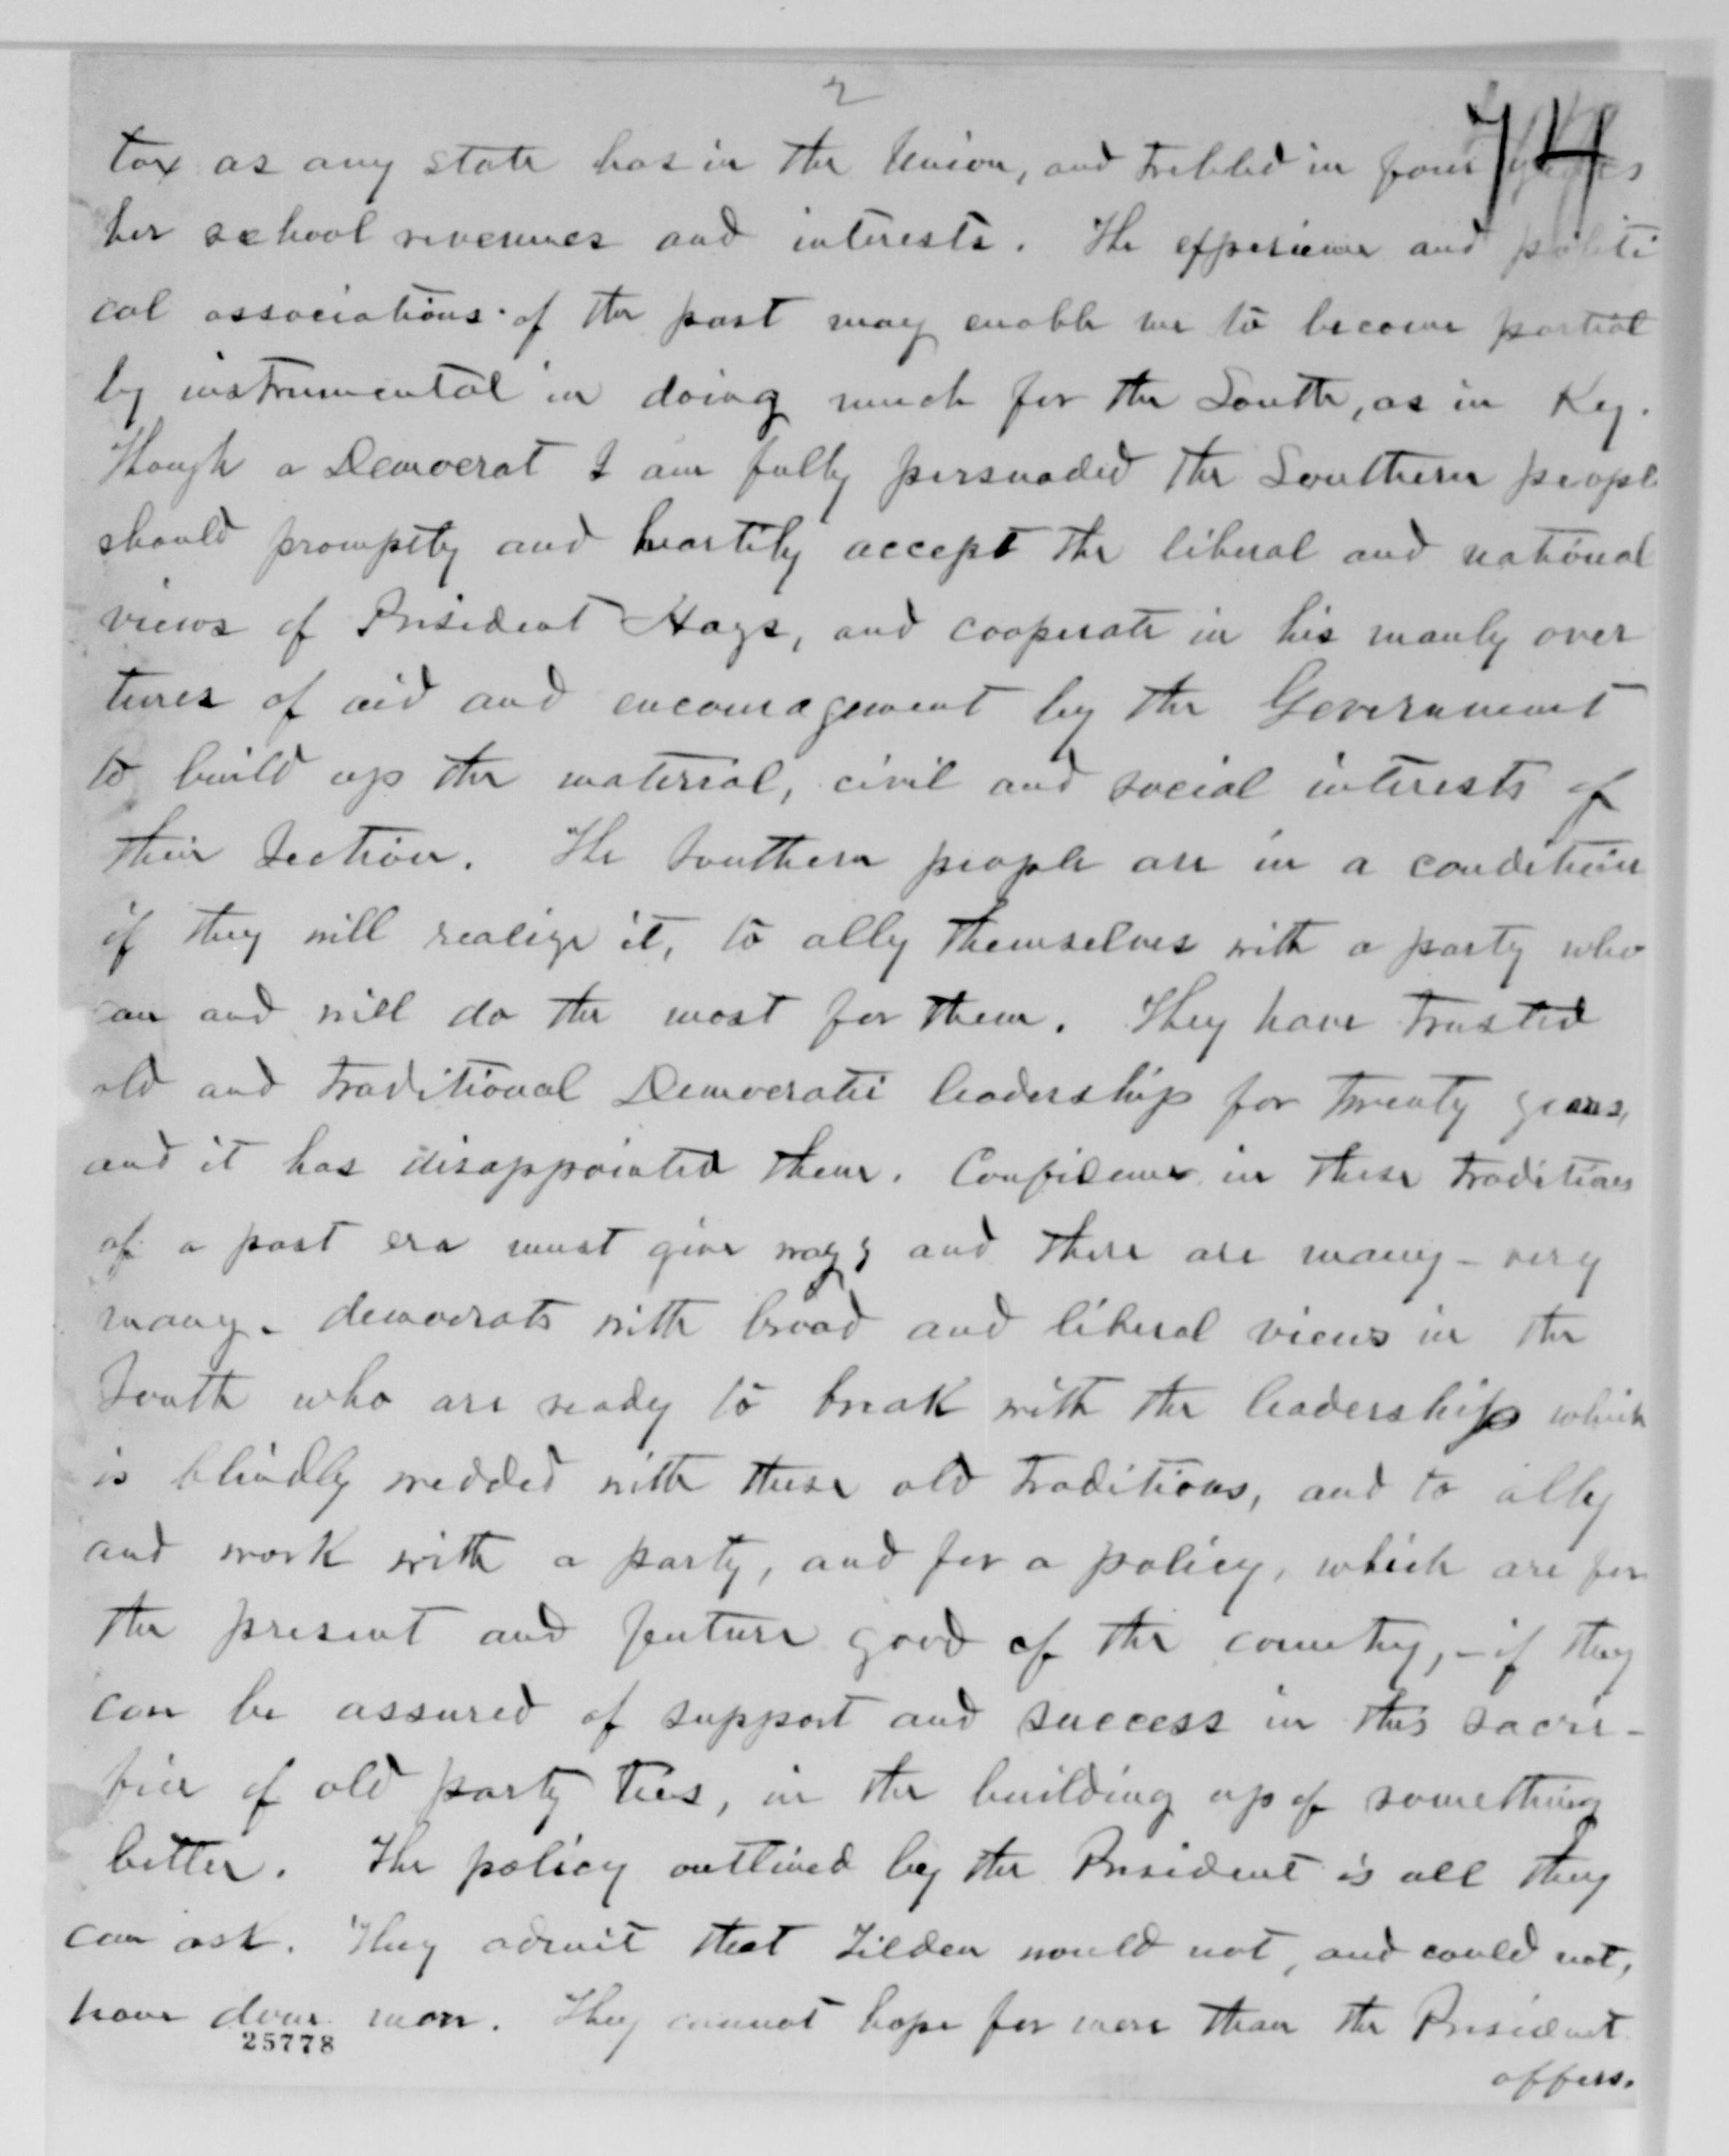 2
74
tax as any state has in the Union, and trebled in four years
her school revenues and interests. The experience and politi
cal associations of the past may enable me to become partial
ly instrumental in doing much for the South, as in Ky.
Though a Democrat I am fully persuaded the Southern people
should promptly and heartily accept the liberal and national
views of President Hays, and cooperate in his manly over
tures of aid and encouragement by the Government
to build up the material, civil and social interests of
their Section. The Southern people are in a condition
if they will realize it, to ally themselves with a party who
can and will do the most for them. They have trusted
old and traditional Democratic leadership for twenty years,
and it has disappointed them. Confidence in these traditions
of a past era must give way; and there are many - very
many - democrats with broad and liberal views in the
South who are ready to break with the leadership which
is blindly wedded with these old traditions, and to ally
and work with a party, and for a policy, which are for
the present and future good of the country, - if they
can be assured of support and success in this sacri-
fice of old party ties, in the building up of something
better. The policy outlined by the President is all they
can ask. They admit that Tilden would not, and could not,
have done more. They cannot hope for more than the President
25778
offers.